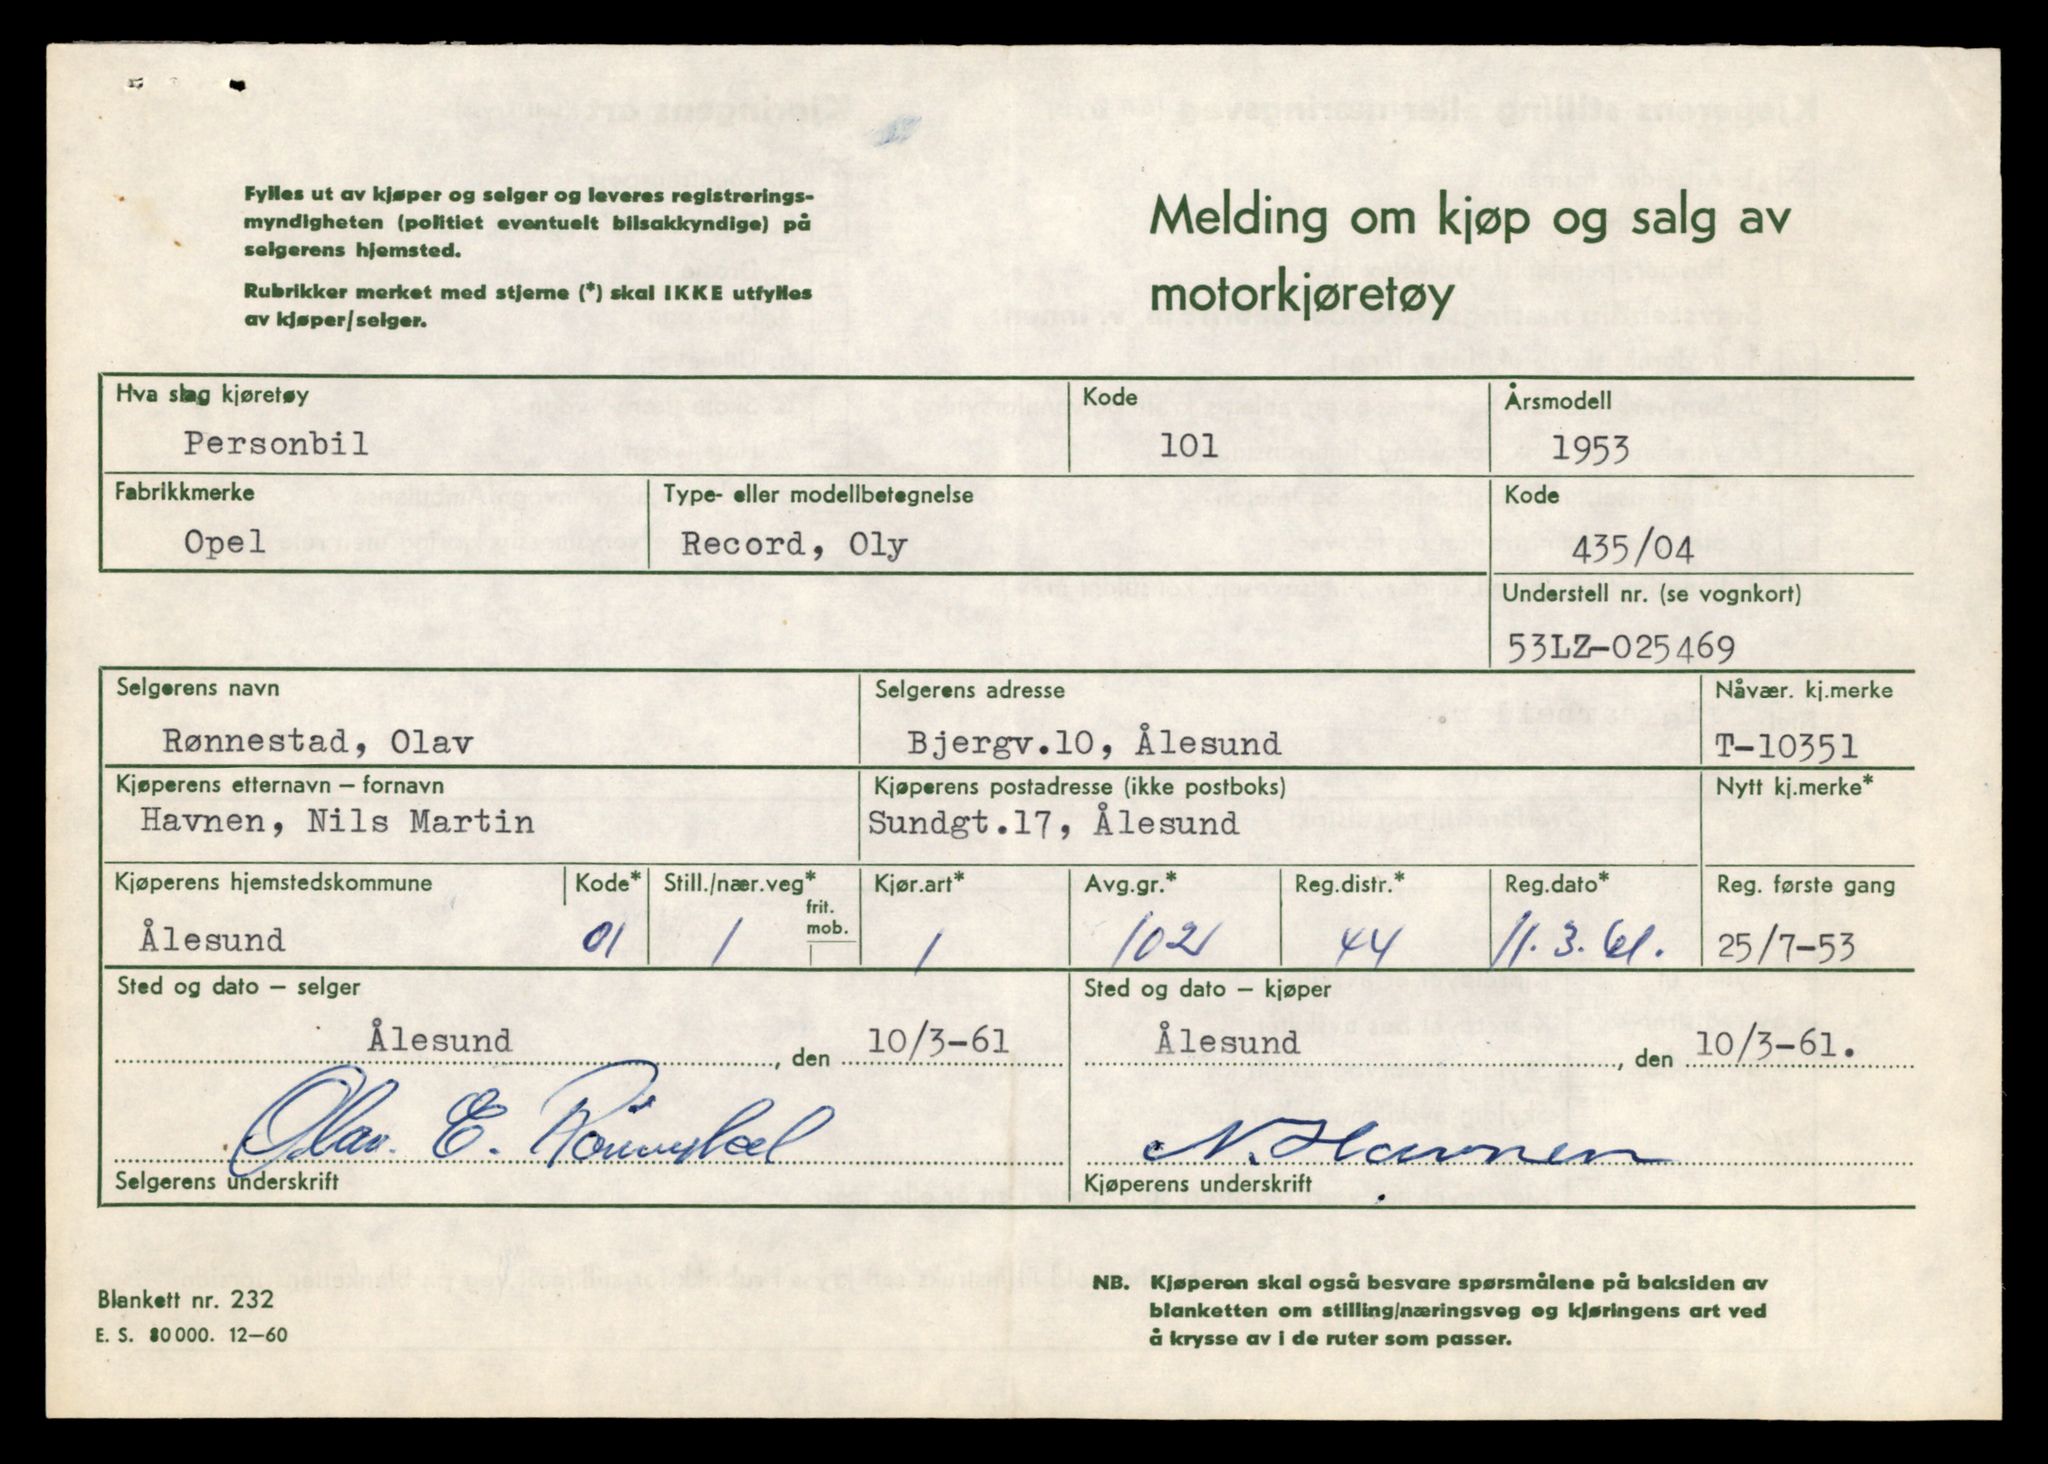 Fylles ut av kjøper og selger og leveres registrerings-
myndigheten (politiet eventuelt bilsakkyndige) på
selgerens hjemsted.
Rubrikker merket med stjerne (*) skal IKKE utfylles
av kjøper/selger.
Melding om kjøp og salg av
motorkjøretøy
Hva slag kjøretøy
Personbil
Kode
101
Årsmodell
1953
Fabrikkmerke
Opel
Type- eller modellbetegnelse
Record, Oly
Kode
435/04
Understell nr. (se vognkort)
53LZ-025469
Selgerens navn
Rønnestad, Olav
Selgerens adresse
Bjergv.10, Ålesund
Nåvær. kj.merke
T-10351
Kjøperens etternavn – fornavn
Havnen, Nils Martin
Kjøperens postadresse (ikke postboks)
Sundgt.17, Ålesund
Nytt kj.merke*
Kjøperens hjemstedskommune
Ålesund
Kode*
01
Still./nær.veg*
1
frit.
mob.
Kjør.art*
1
Avg.gr.*
102
Reg.distr.*
44
Reg.dato*
11.3.61.
Reg. første gang
25/7-53
Sted og dato – selger
Ålesund, den 10/3-61
Olav E. Rönnestad
Selgerens underskrift
Sted og dato – kjøper
Ålesund, den 10/3-61.
N. Havnen
Kjøperens underskrift
Blankett nr. 232
E. S. 80000. 12–60
NB. Kjøperen skal også besvare spørsmålene på baksiden av
blanketten om stilling/næringsveg og kjøringens art ved
å krysse av i de ruter som passer.